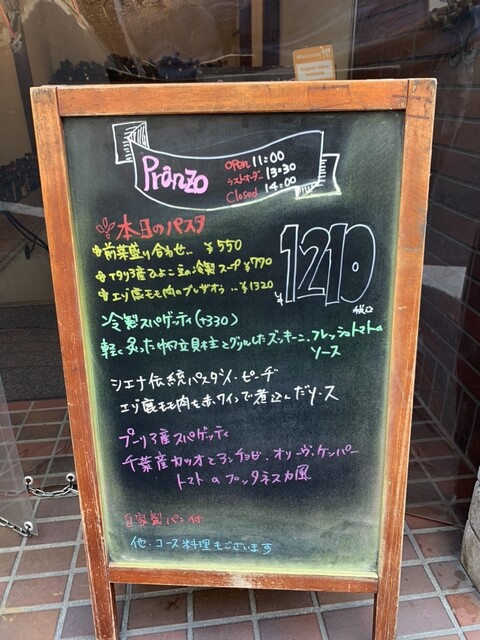 Pranzo
open 11:00
ラストオーダー 13:30
Closed 14:00
本日のパスタ
¥1210
税込
前菜盛り合わせ.. ¥550
イタリア産ひよこ豆の冷製スープ ¥770
エゾ鹿モモ肉のブレザオラ.. ¥1320
冷製スパゲッティ(+330)
軽く炙った帆立貝柱とグリルしたズッキーニ、フレッシュトマトの
ソース
シエナ伝統パスタ、ピーチ
エゾ鹿モモ肉を赤ワインで煮込んだソース
プーリア産スパゲッティ
千葉産カツオとアンチョビ、オリーヴ、ケッパー
トマトのプッタネスカ風
自家製パン付
他、コース料理もございます